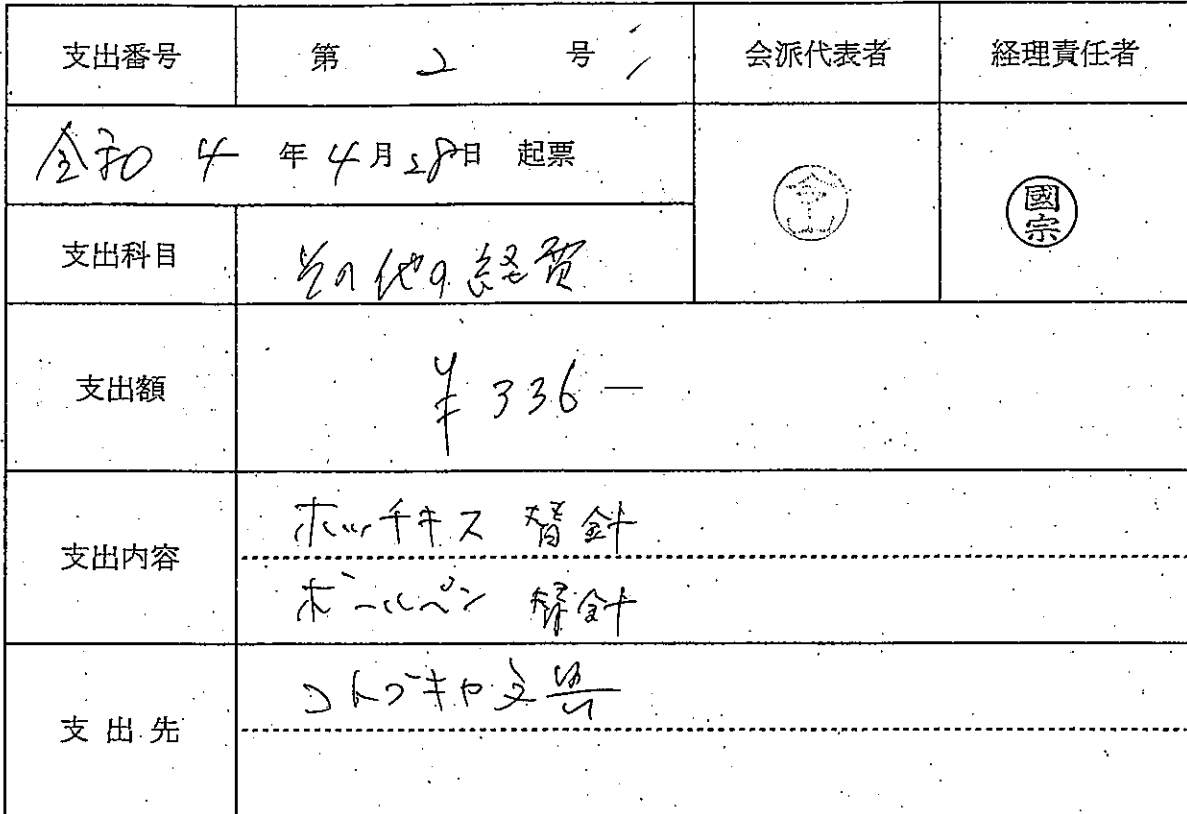 支出番号 第 2 号 会派代表者 経理責任者
令和 4 年 4月28日 起票
國宗
支出科目 その他の経費
支出額 ¥336―
支出内容 ホッチキス 替針
ボールペン 替針
支出先 コトブキヤ文具